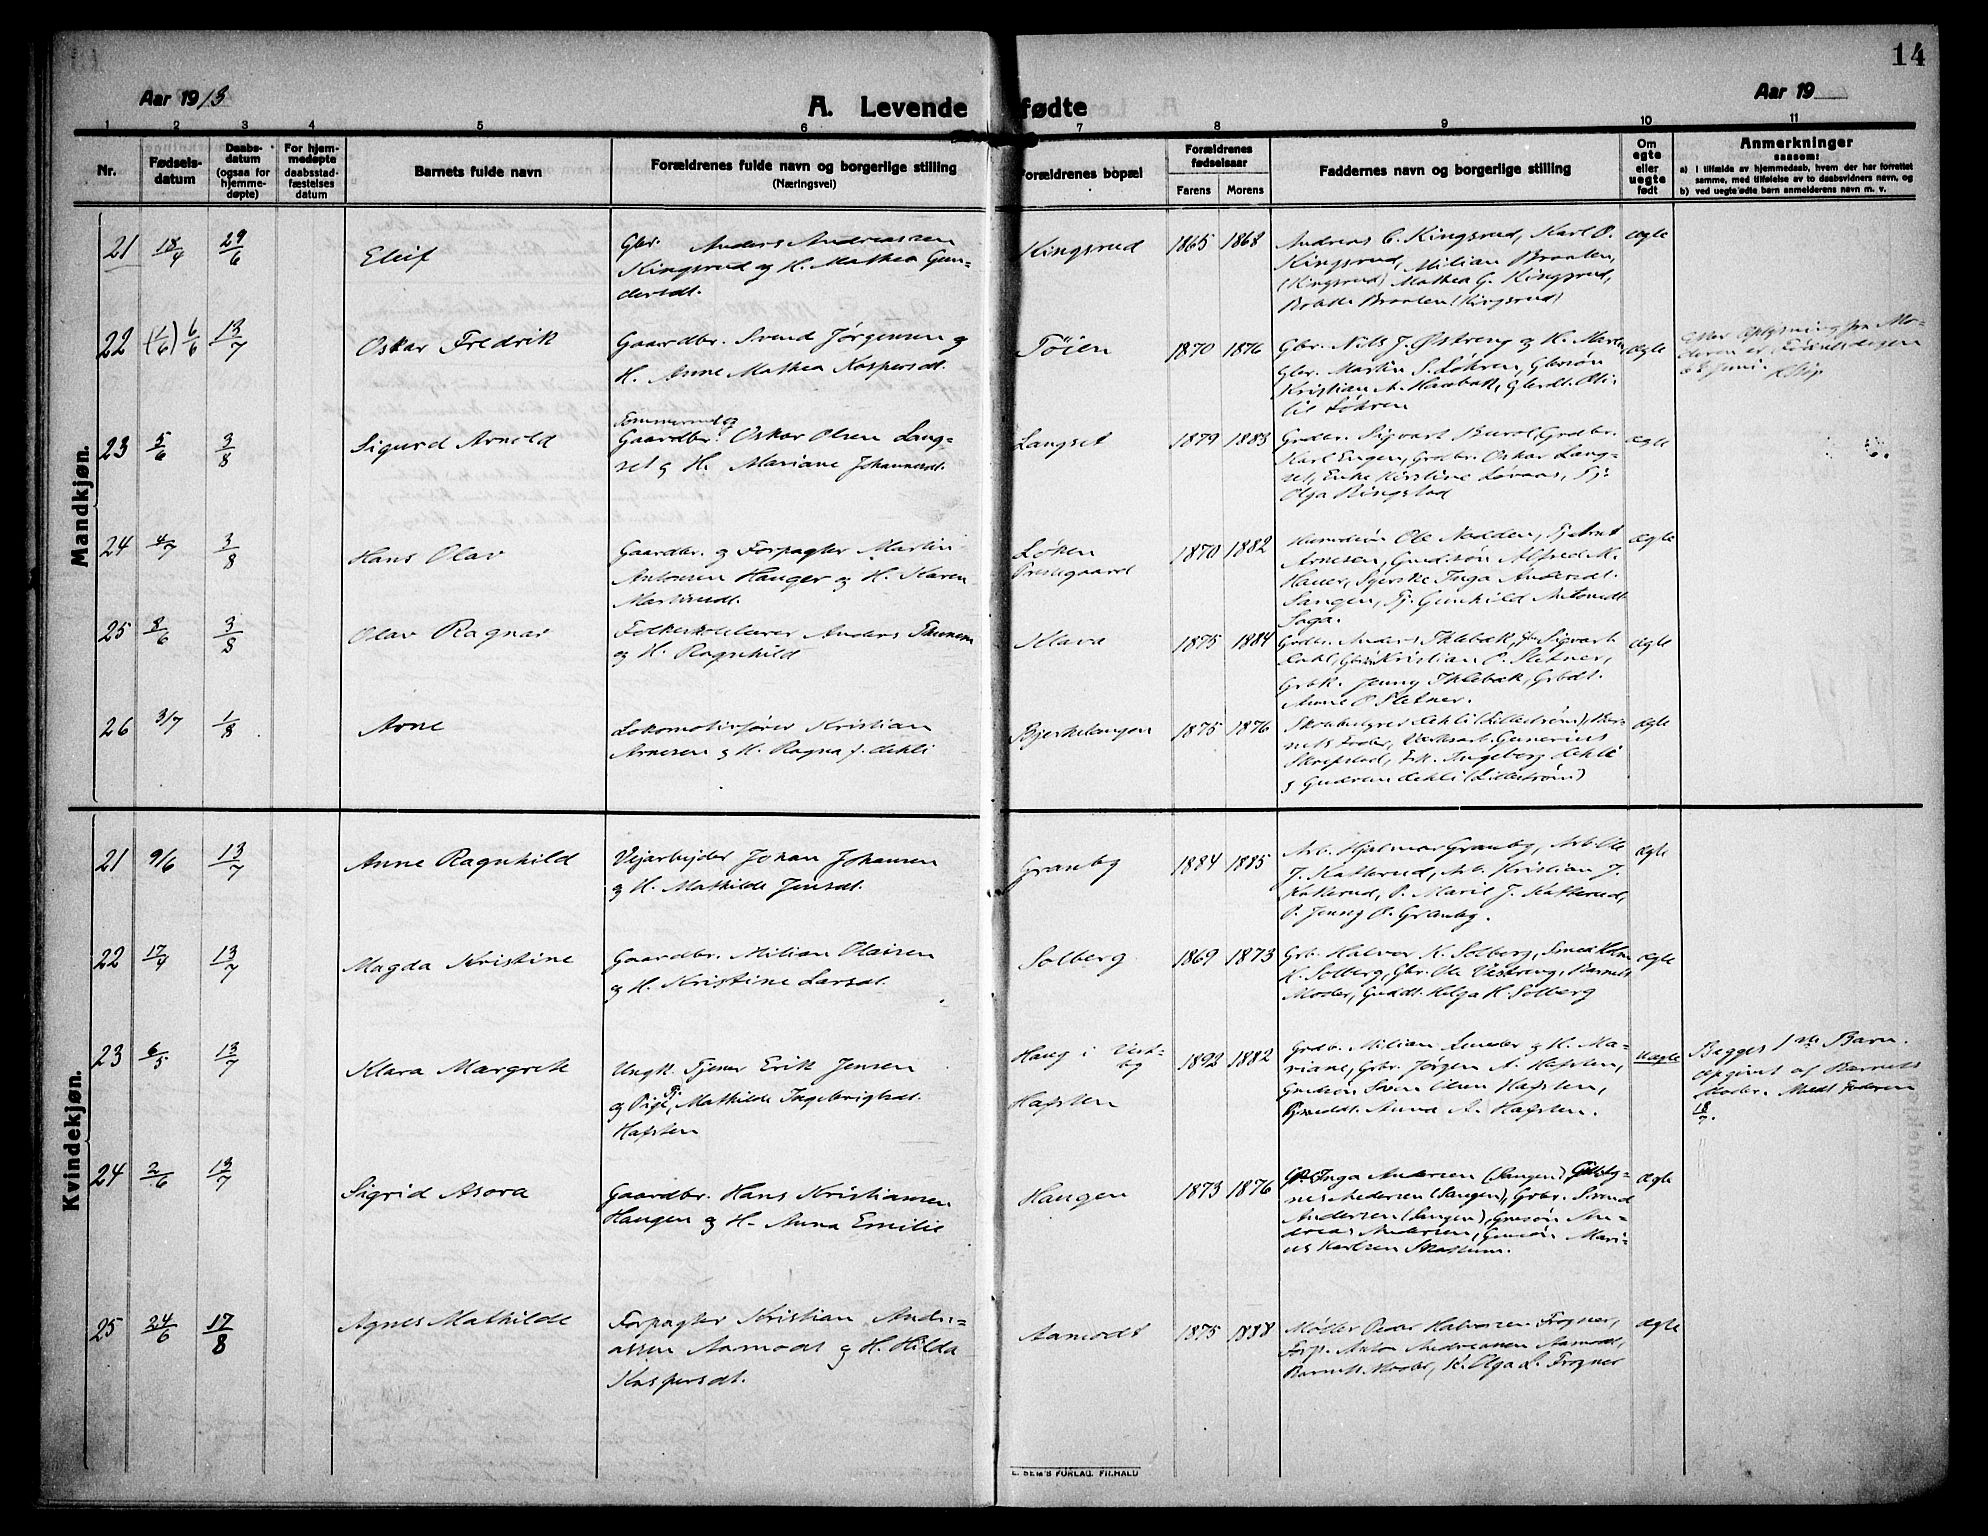 14
Aar 1913
A. Levende fødte
Aar 19
1 2 3 4 5 6 7 8 9 10 11
Nr.
Fødsels-
datum
Daabs-
datum
(ogsaa for
hjemme-
døpte)
For hjem-
medøpte
daabsstad-
fæstelses
datum
Barnets fulde navn
Forældrenes fulde navn og borgerlige stilling
(Næringsvei)
Forældrenes bopæl
Forældrenes
fødselsaar
Farens Morens
Faddernes navn og borgerlige stilling
Om
egte
eller
uegte
født
Anmerkninger
saasom:
a) i tilfælde av hjemmedaab, hvem der har forrettet
samme, med tilføielse av to daabsvidners navn, og
b) ved uegte fødte barn anmelderens navn m. v.
Mandkjøn.
21 18/4 29/6
Gbr. Anders Andreassen
Kingsrud og H. Mathea Gun-
dersdt.
Kingsrud 1865 1868
Andreas C. Kingsrud, Karl P.
Kingsrud, Milian Braaten,
(Kingsrud) Mathea G. Kingsrud,
Braaten (Kingsrud)
ægte
22 (1/6) 6/6 13/7
Oskar Fredrik
Gaardbr. Svend Jørgensen og
H. Anne Mathea Kaspersdt.
Tøien 1870 1876
Gbr. Nils J. Østreng og H. Marte,
Gbr. Martin S. Løhren, Gbrsøn
Kristian A. Haneback, Gbrdt. Oli-
Løhren
ægte
Efter Oplysning fra Mo-
deren er Fødselsdagen
6 Juni.
23 5/6 3/8
Sigurd Arnold
Tømmermd og
Gaardbr. Oskar Olsen Lang-
set og H. Mariane Johannesdt.
Langset 1879 1883
Sigvart
Karl Engen, Grdbr. Oskar Lang-
set, Enke Kirstine Løvaas, Tj.
Olga Ringstad
ægte
24 4/7 3/8
Hans Olav
Gaardbr. og Forpagter Martin
Antonsen Hauger og H. Karen
Martinsdt.
Løken
Prestegaard
1870 1882
Ole Nadden, Tj. Arnt
Arnesen, Gaardsøn Alfred K.
Hauer, Syerske Inga Andersdt.
Sangen, Tj. Gunhild Antonsdt.
Saga.
ægte
25 8/6 3/8
Olav Ragnar
Folkeskolelærer Anders Tannem
og H. Ragnhild
Klava 1875 1884
Grdbr. Anders Ihlebæk, Sigvart
Dahl, Kristian O. Sletner,
Grbk. Jenny Ihlebæk, Grbdt.
Anne O. Sletner.
ægte
26 3/7 1/8
Arne
Lokomotivfører Kristian
Arnesen og H. Ragna f. Dehli
Bjerkelangen 1875 1876
Dehli (Lillestrøm), Bar-
nets Fader, Gunerius
Skrepstad, Frk. Ingeborg Dehli
og Gudrun Dehli (Lillestrøm)
ægte
Kvindekjøn.
21 9/6 13/7
Anne Ragnhild
Veiarbeider Johan Johansen
og H. Mathilde Jensdt.
Granby 1884 1885
Arb. Hjalmar Granby, Arb. Ole
J. Katterud, Arb. Kristian J.
Katterud, P. Marie J. Katterud,
P. Jenny P. Granby.
ægte
22 17/4 13/7
Magda Kristine
Gaardbr. Milian Olaisen
og H. Kristine Larsdt.
Solberg 1869 1873
Grb. Halvor K. Solberg, Smed
H. Solberg, Gbr. Ole Vestreng, Barnets
Moder, Gaddt. Helga H. Solberg
ægte
23 6/5 13/7
Klara Margrete
Ungk. Tjener Erik Jensen
og Pige, Tj. Mathilde Ingebrigtsdt.
Hafsten
Haug i Vest-
by
Hafsten
1892 1882
Grdb. Milian og H. Ma-
riane, Grbr. Jørgen A. Hafsten,
Gaardsøn Sven Olsen Hafsten,
Anna A. Hafsten.
uægte
Begges 1ste Barn.
Opgivet af Barnets
Moder. Medt Faderen
18/7.
24 2/6 13/7
Sigrid Asora
Gaardbr. Hans Kristiansen
Haugen og H. Anna Emilie
Haugen 1873 1876
Inga Andersen (Sangen)
Andersen (Sangen), Grbr. Svend
Andersen (Sangen), Grdsøn An-
dreas Andersen, Mari-
us Karlsen Skattum.
ægte
25 24/6 17/8
Agnes Mathilde
Forpagter Kristian Andre-
assen Aamodt og H. Hilda
Kaspersdt.
Aamodt 1875 1888
Møller Peder Halvorsen Frogner,
Forp. Anton Andreassen Aamodt,
Barnets Moder, K. Olga L. Frogner
ægte
E. SEM'S FORLAG, FR.HALD